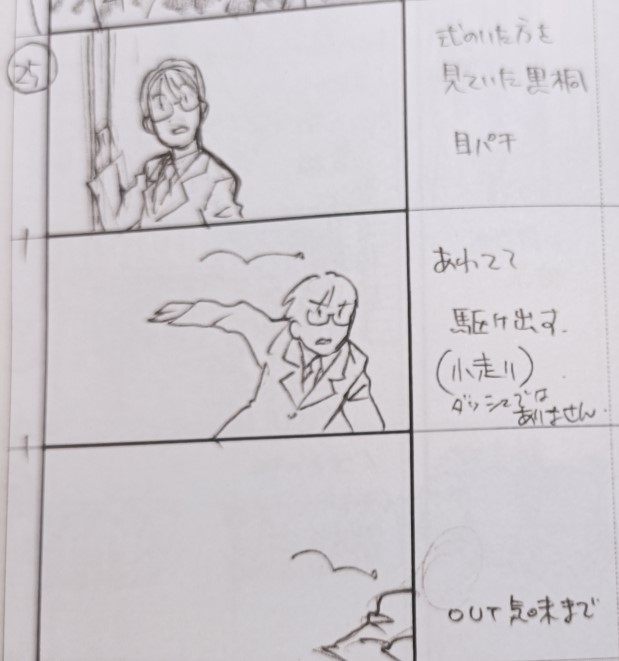 25
式のいた方を
見ていた黒桐
目パチ
あわてて
駆け出す.
(小走り)
ダッシュでは
ありません.
OUT気味まで